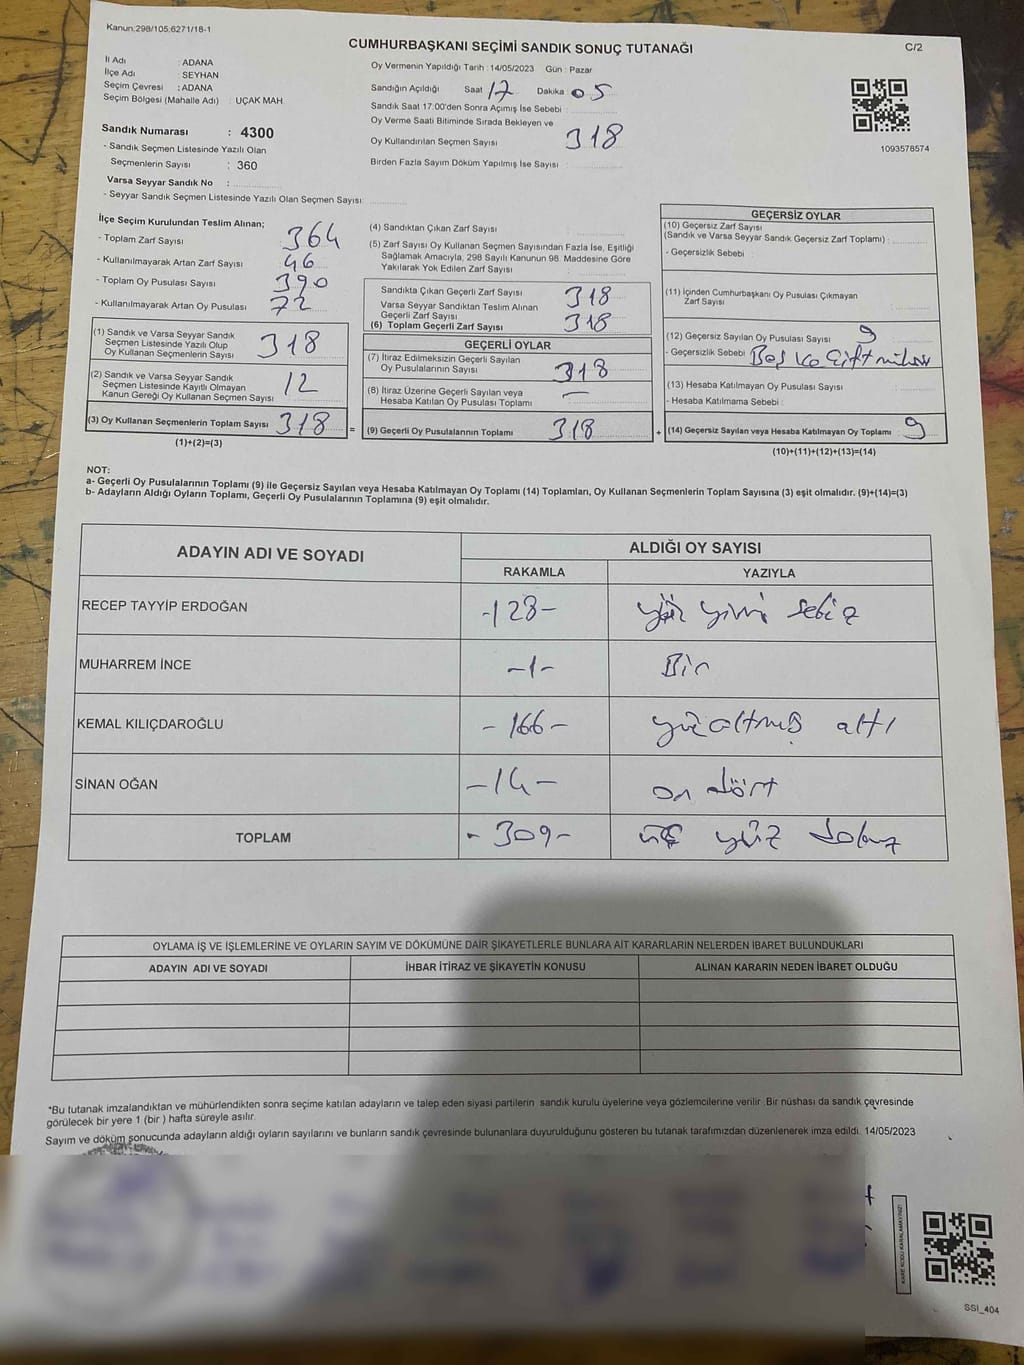 Kanun:298/105;6271/18-1
CUMHURBAŞKANI SEÇİMİ SANDIK SONUÇ TUTANAĞI
C/2
İl Adı : ADANA
İlçe Adı : SEYHAN
Seçim Çevresi : ADANA
Seçim Bölgesi (Mahalle Adı) : UÇAK MAH.
Sandık Numarası : 4300
- Sandık Seçmen Listesinde Yazılı Olan
Seçmenlerin Sayısı : 360
Varsa Seyyar Sandık No :
- Seyyar Sandık Seçmen Listesinde Yazılı Olan Seçmen Sayısı:
Oy Vermenin Yapıldığı Tarih : 14/05/2023 Gün : Pazar
Sandığın Açıldığı Saat 17 Dakika 05
Sandık Saat 17:00'den Sonra Açımış İse Sebebi :
Oy Verme Saati Bitiminde Sırada Bekleyen ve
Oy Kullandırılan Seçmen Sayısı 318
Birden Fazla Sayım Döküm Yapılmış İse Sayısı :
1093578574
İlçe Seçim Kurulundan Teslim Alınan;
- Toplam Zarf Sayısı 364
- Kullanılmayarak Artan Zarf Sayısı 46
- Toplam Oy Pusulası Sayısı 390
- Kullanılmayarak Artan Oy Pusulası 72
(1) Sandık ve Varsa Seyyar Sandık
Seçmen Listesinde Yazılı Olup
Oy Kullanan Seçmenlerin Sayısı 318
(2) Sandık ve Varsa Seyyar Sandık
Seçmen Listesinde Kayıtlı Olmayan
Kanun Gereği Oy Kullanan Seçmen Sayısı 12
(3) Oy Kullanan Seçmenlerin Toplam Sayısı 318 =
(1)+(2)=(3)
(4) Sandıktan Çıkan Zarf Sayısı :
(5) Zarf Sayısı Oy Kullanan Seçmen Sayısından Fazla İse, Eşitliği
Sağlamak Amacıyla, 298 Sayılı Kanunun 98. Maddesine Göre
Yakılarak Yok Edilen Zarf Sayısı :
Sandıkta Çıkan Geçerli Zarf Sayısı 318
Varsa Seyyar Sandıktan Teslim Alınan
Geçerli Zarf Sayısı
(6) Toplam Geçerli Zarf Sayısı 318
GEÇERLİ OYLAR
(7) İtiraz Edilmeksizin Geçerli Sayılan
Oy Pusulalarının Sayısı 318
(8) İtiraz Üzerine Geçerli Sayılan veya
Hesaba Katılan Oy Pusulası Toplamı —
(9) Geçerli Oy Pusulalarının Toplamı 318 +
GEÇERSİZ OYLAR
(10) Geçersiz Zarf Sayısı
(Sandık ve Varsa Seyyar Sandık Geçersiz Zarf Toplamı) :
- Geçersizlik Sebebi :
(11) İçinden Cumhurbaşkanı Oy Pusulası Çıkmayan
Zarf Sayısı :
(12) Geçersiz Sayılan Oy Pusulası Sayısı : 9
- Geçersizlik Sebebi : Boş ve Çift mühür
(13) Hesaba Katılmayan Oy Pusulası Sayısı :
- Hesaba Katılmama Sebebi :
(14) Geçersiz Sayılan veya Hesaba Katılmayan Oy Toplamı : 9
(10)+(11)+(12)+(13)=(14)
NOT:
a- Geçerli Oy Pusulalarının Toplamı (9) ile Geçersiz Sayılan veya Hesaba Katılmayan Oy Toplamı (14) Toplamları, Oy Kullanan Seçmenlerin Toplam Sayısına (3) eşit olmalıdır. (9)+(14)=(3)
b- Adayların Aldığı Oyların Toplamı, Geçerli Oy Pusulalarının Toplamına (9) eşit olmalıdır.
ADAYIN ADI VE SOYADI ALDIĞI OY SAYISI
RAKAMLA YAZIYLA
RECEP TAYYİP ERDOĞAN -128- yüz yirmi sekiz
MUHARREM İNCE -1- Bir
KEMAL KILIÇDAROĞLU -166- yüz altmış altı
SİNAN OĞAN -14- on dört
TOPLAM -309- üç yüz dokuz
OYLAMA İŞ VE İŞLEMLERİNE VE OYLARIN SAYIM VE DÖKÜMÜNE DAİR ŞİKAYETLERLE BUNLARA AİT KARARLARIN NELERDEN İBARET BULUNDUKLARI
ADAYIN ADI VE SOYADI İHBAR İTİRAZ VE ŞİKAYETİN KONUSU ALINAN KARARIN NEDEN İBARET OLDUĞU
*Bu tutanak imzalandıktan ve mühürlendikten sonra seçime katılan adayların ve talep eden siyasi partilerin sandık kurulu üyelerine veya gözlemcilerine verilir. Bir nüshası da sandık çevresinde
görülecek bir yere 1 (bir ) hafta süreyle asılır.
Sayım ve döküm sonucunda adayların aldığı oyların sayılarını ve bunların sandık çevresinde bulunanlara duyurulduğunu gösteren bu tutanak tarafımızdan düzenlenerek imza edildi. 14/05/2023
KARE KODU KARALAMAYINIZ!
SSİ_404